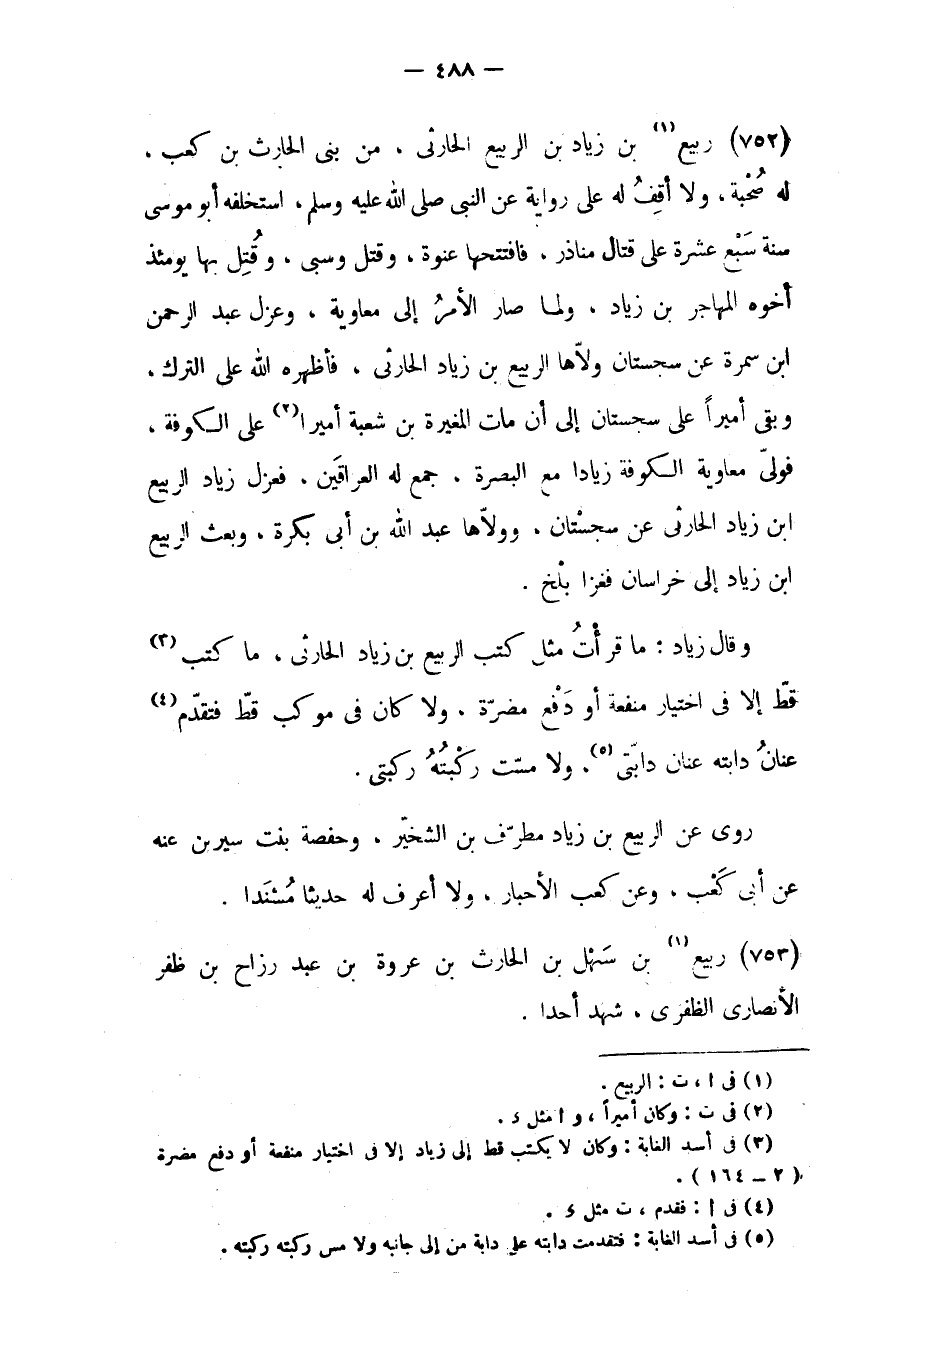 — ٤٨٨ —
(٧٥٢) ربيع(١) بن زياد بن الربيع الحارثى ، من بنى الحارث بن كعب .
له صُحْبة، ولا أقِفُ له على رواية عن النبى صلى الله عليه وسلم، استخلفه أبو موسى
سنة سَبْع عشرة على قتال مناذر ، فافتتحها عنوة ، وقتل وسبى ، وقُتِل بها يومئذ
أخوه المهاجر بن زياد ، ولما صار الأمرُ إلى معاوية ، وعزل عبد الرحمن
ابن سمرة عن سجستان ولاّها الربيع بن زياد الحارثى ، فأظهره الله على الترك ،
وبقى أميراً على سجستان إلى أن مات المغيرة بن شعبة أميرا(٢) على الكوفة ،
فولىّ معاوية الكوفة زيادا مع البصرة ، جمع له العراقَين ، فعزل زياد الربيع
ابن زياد الحارثى عن سجسْتان ، وولاّها عبد الله بن أبى بكرة ، وبعث الربيع
ابن زياد إلى خراسان فغزا بلْخ .
وقال زياد : ما قرأْتُ مثل كتب الربيع بن زياد الحارثى ، ما كتب(٣)
قطّ إلا فى اختيار منفعة أو دَفْع مضرّة ، ولا كان فى موكب قطّ فتقدّم(٤)
عنانُ دابته عنان دابّتى(٥)، ولا مسّت ركْبتُهُ ركبتى .
روى عن الربيع بن زياد مطرّف بن الشخيّر ، وحفصة بنت سيرين عنه
عن أبى كَعْب ، وعن كعب الأحبار ، ولا أعرف له حديثا مُسْنَدا .
(٧٥٣) ربيع(١) بن سَهْل بن الحارث بن عروة بن عبد رزاح بن ظفر
الأنصارى الظفرى ، شهد أحدا .
(١) فى ا ، ت : الربيع .
(٢) فى ت : وكان أميراً ، و ا مثل ء .
(٣) فى أسد الغابة : وكان لا يكتب قط إلى زياد إلا فى اختيار منفعة أو دفع مضرة
( ٢ – ١٦٤ ) .
(٤) فى أ : فقدم ، ت مثل ء .
(٥) فى أسد الغابة : فتقدمت دابته على دابة من إلى جانبه ولا مس ركبته ركبته .